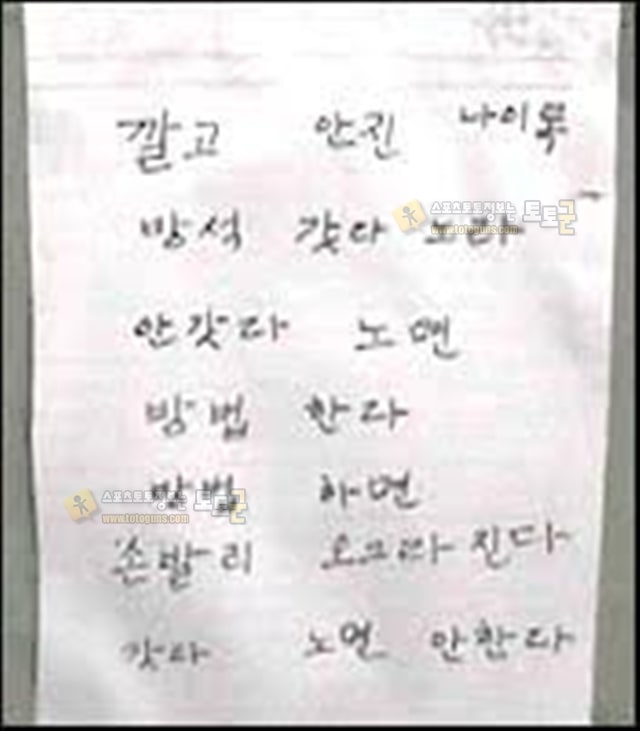 깔고 안진 나이롱
방석 갓다 노라
스포츠토토정보는 토토군
www.totoguns.com
안갓다 노면
방법 한다
방법 하면
스포츠토토정보는 토토군
www.totoguns.com
손발리 오그라진다
갓다 노면 안한다